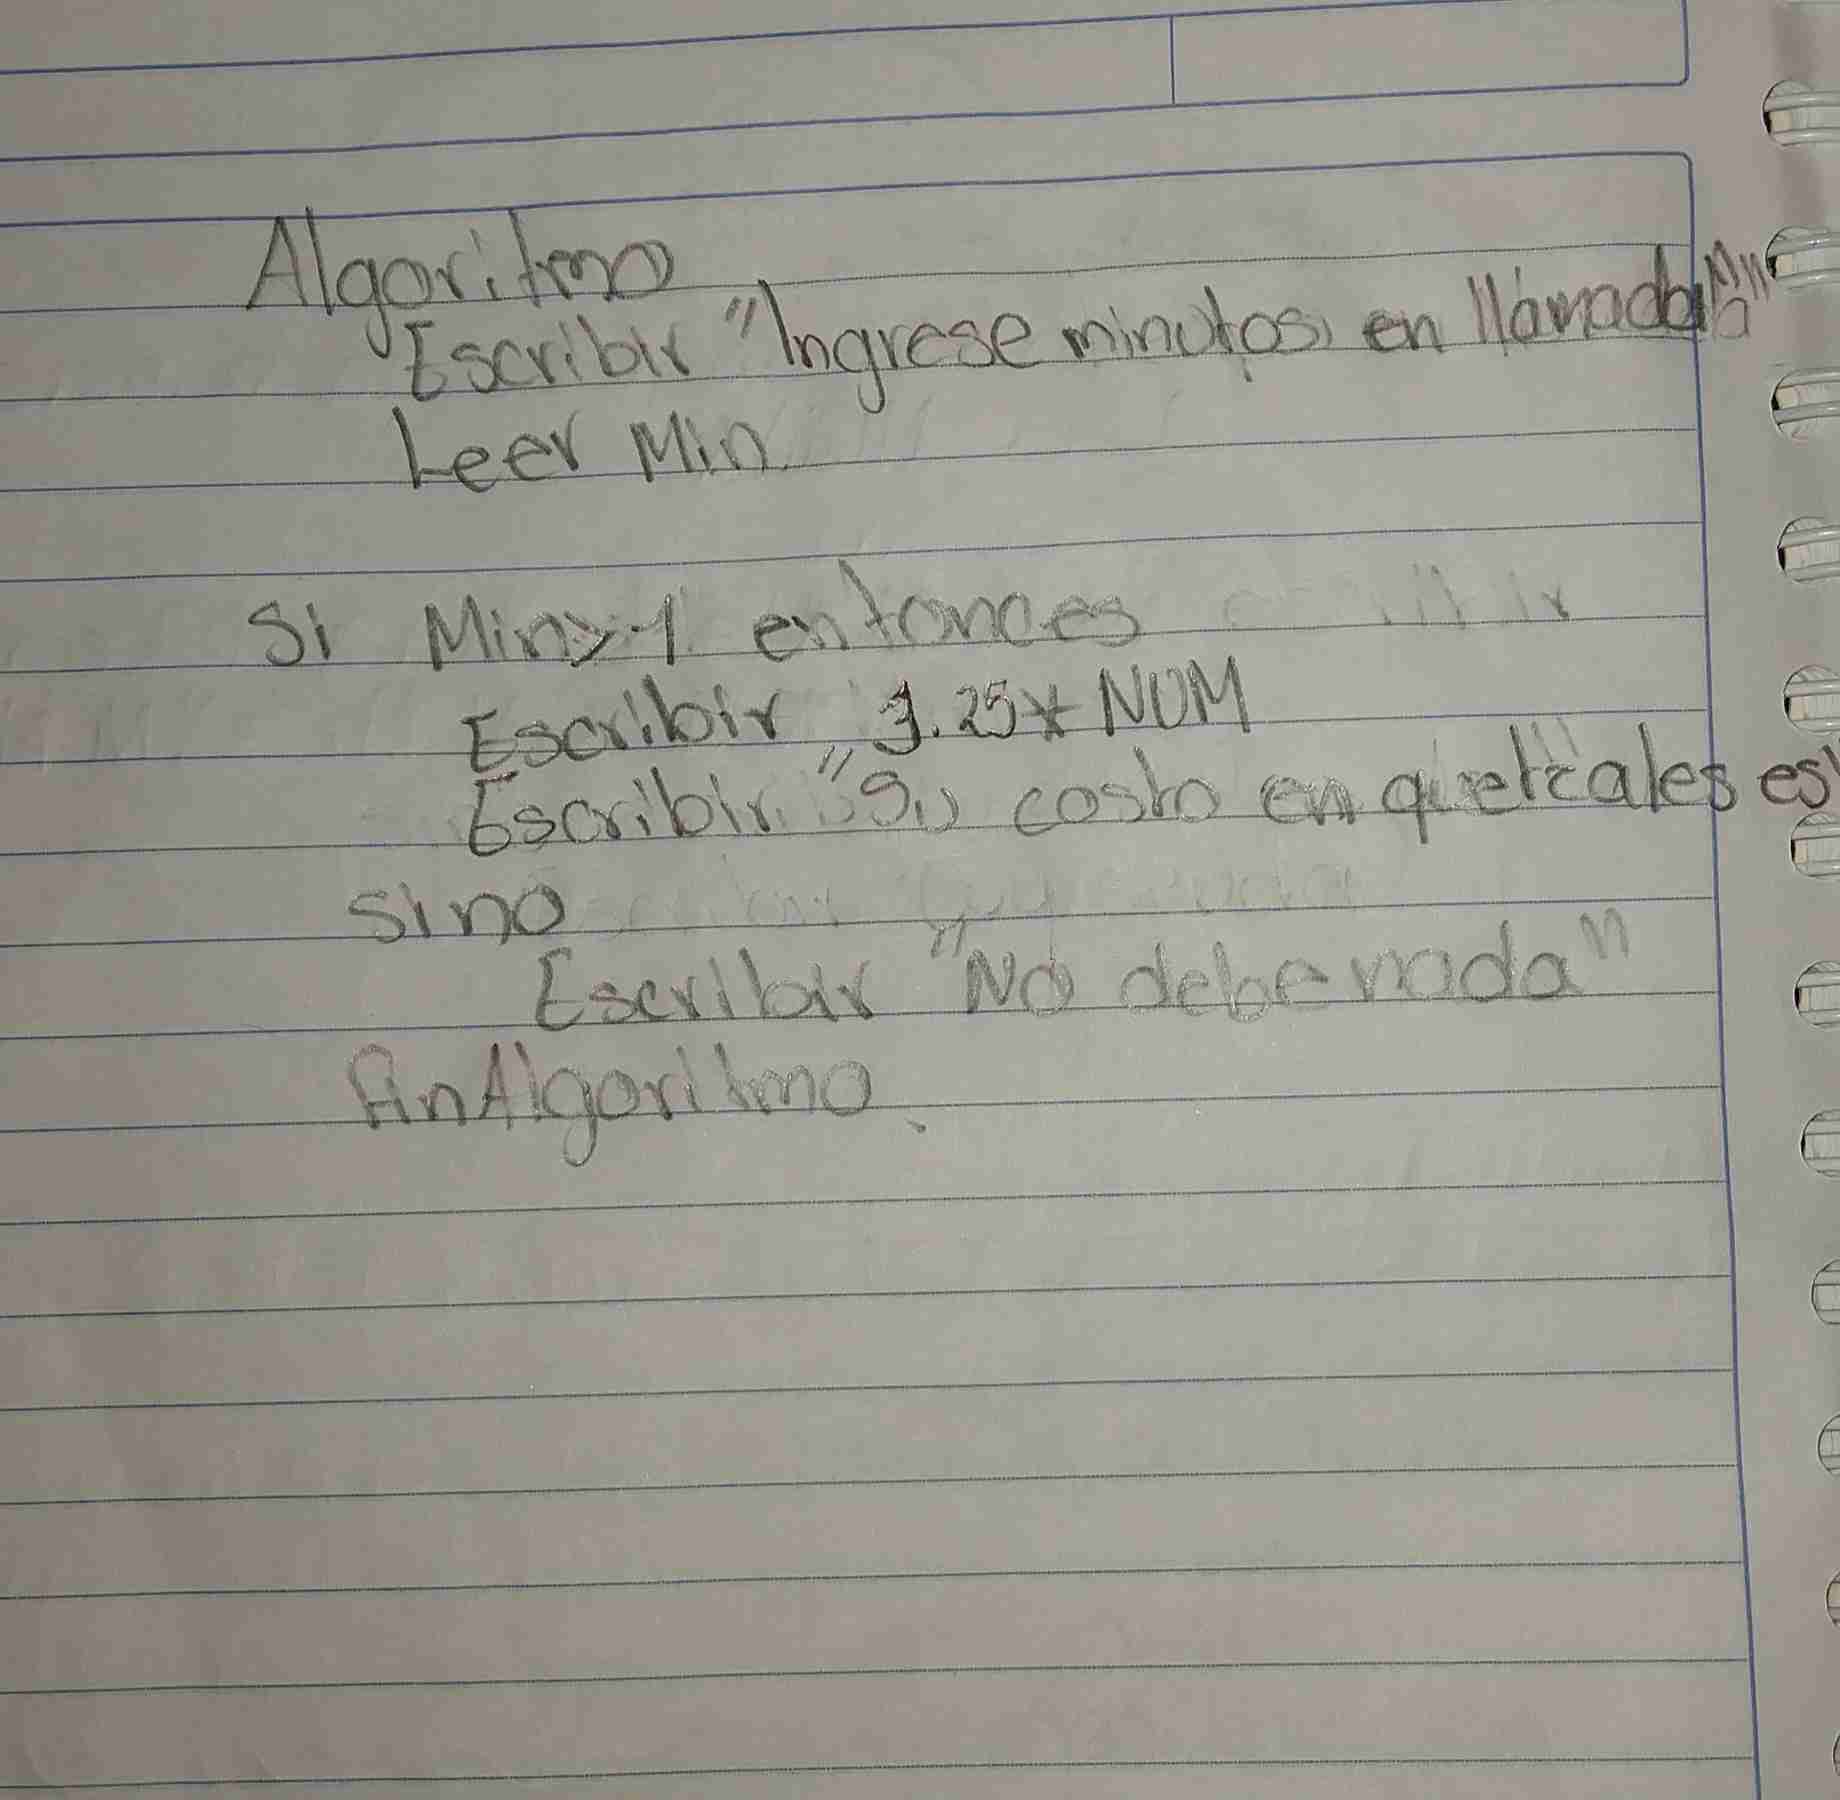 Algoritmo
Escribir "Ingrese minutos en llamada"
Leer Min
Si Min>1 entonces
Escribir 3.25* NUM
Escribir "Su costo en quetzales es"
sino
Escribir "No debe nada"
FinAlgoritmo